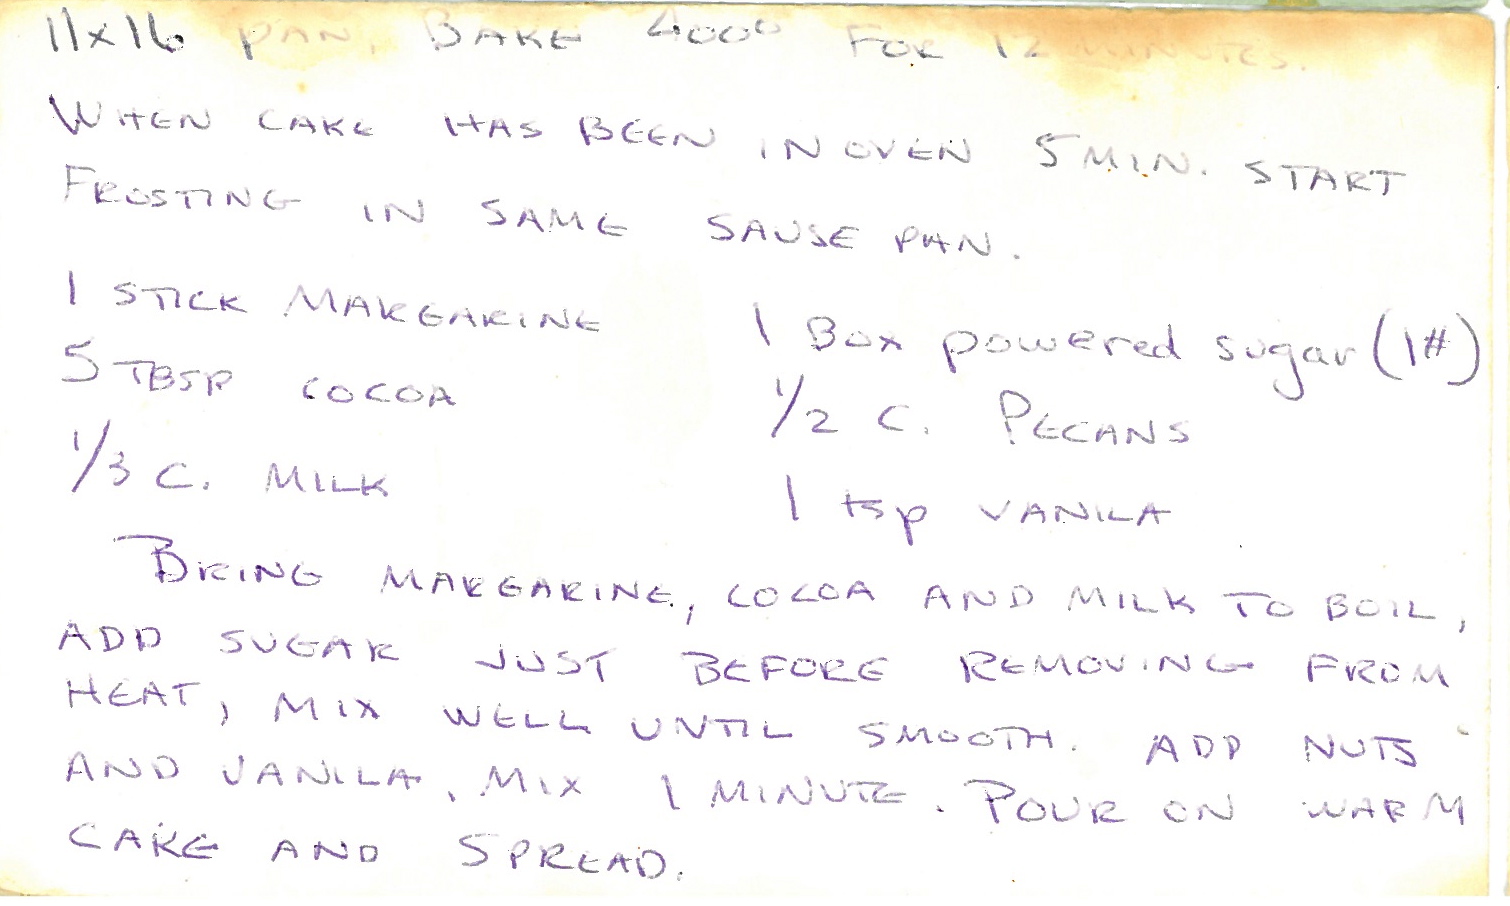 11x16 PAN, BAKE 400° FOR 12 MINUTES.
WHEN CAKE HAS BEEN IN OVEN 5 MIN. START
FROSTING IN SAME SAUSE PAN.
1 STICK MARGARINE
5 TBSP COCOA
1/3 C. MILK
1 Box powered sugar (1#)
1/2 C. PECANS
1 tsp VANILA
BRING MARGARINE, COCOA AND MILK TO BOIL,
ADD SUGAR JUST BEFORE REMOVING FROM
HEAT, MIX WELL UNTIL SMOOTH. ADD NUTS
AND VANILA, MIX 1 MINUTE. POUR ON WARM
CAKE AND SPREAD.